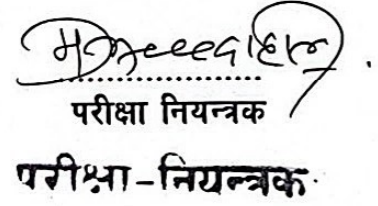 परीक्षा नियन्त्रक
परीक्षा-नियन्त्रक